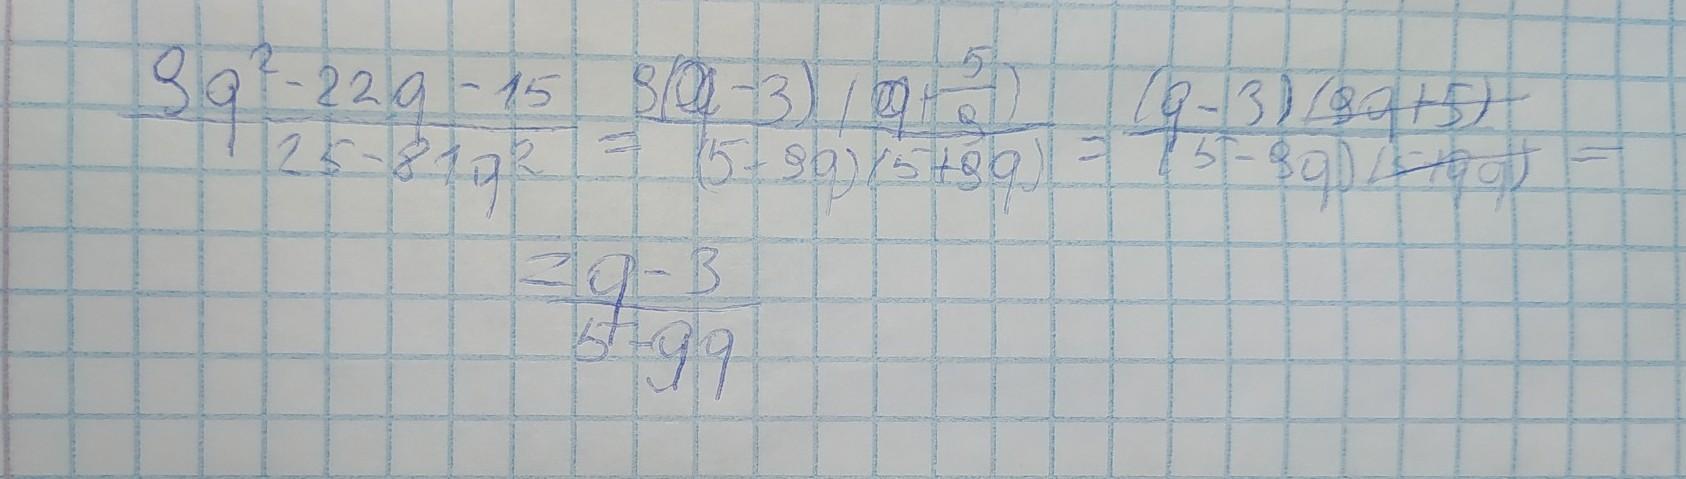 (9q² - 22q - 15)/(25 - 81q²) = 9(q - 3)(q + 5/9)/((5 - 9q)(5 + 9q)) = (q - 3)(9q + 5)/((5 - 9q)(5 + 9q)) =
= (q - 3)/(5 - 9q)